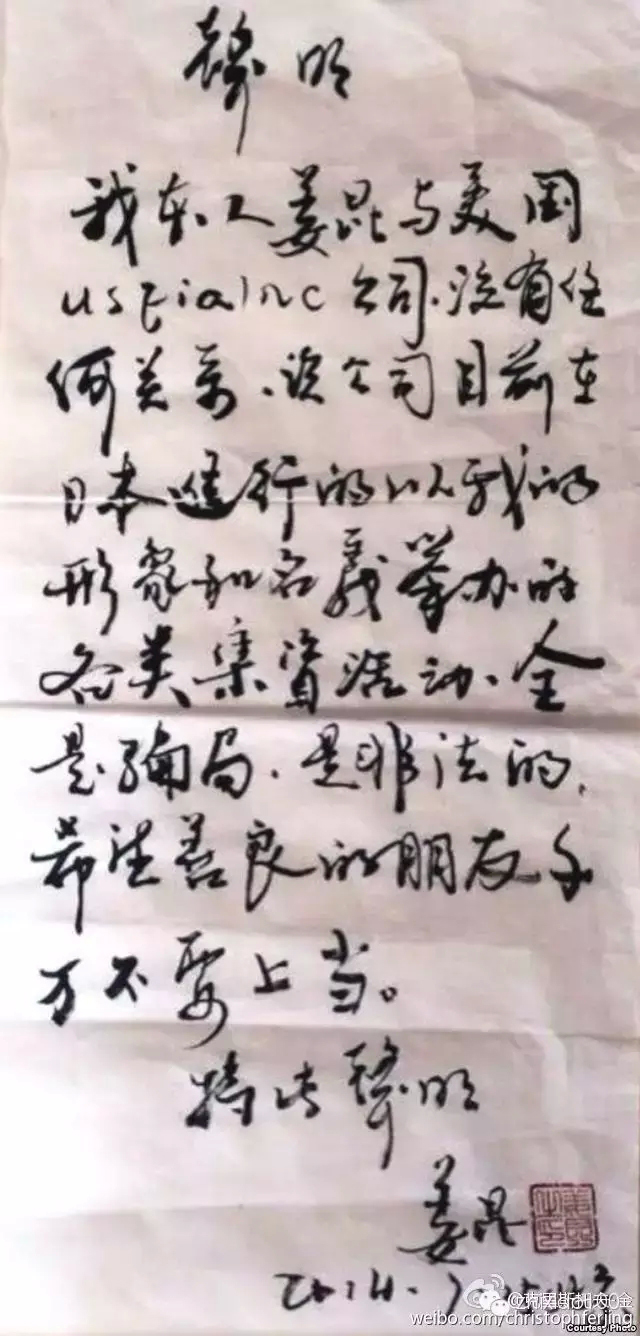 聲明
我本人姜昆与美国
usfia Inc公司.没有任
何关系.该公司目前在
日本進行的以我的
形象和名義举办的
各类集資活动、全
是骗局.是非法的,
希望善良的朋友千
万不要上当。
特此聲明
姜昆
2014.
weibo.com/christophferjing
Courtesy Photo